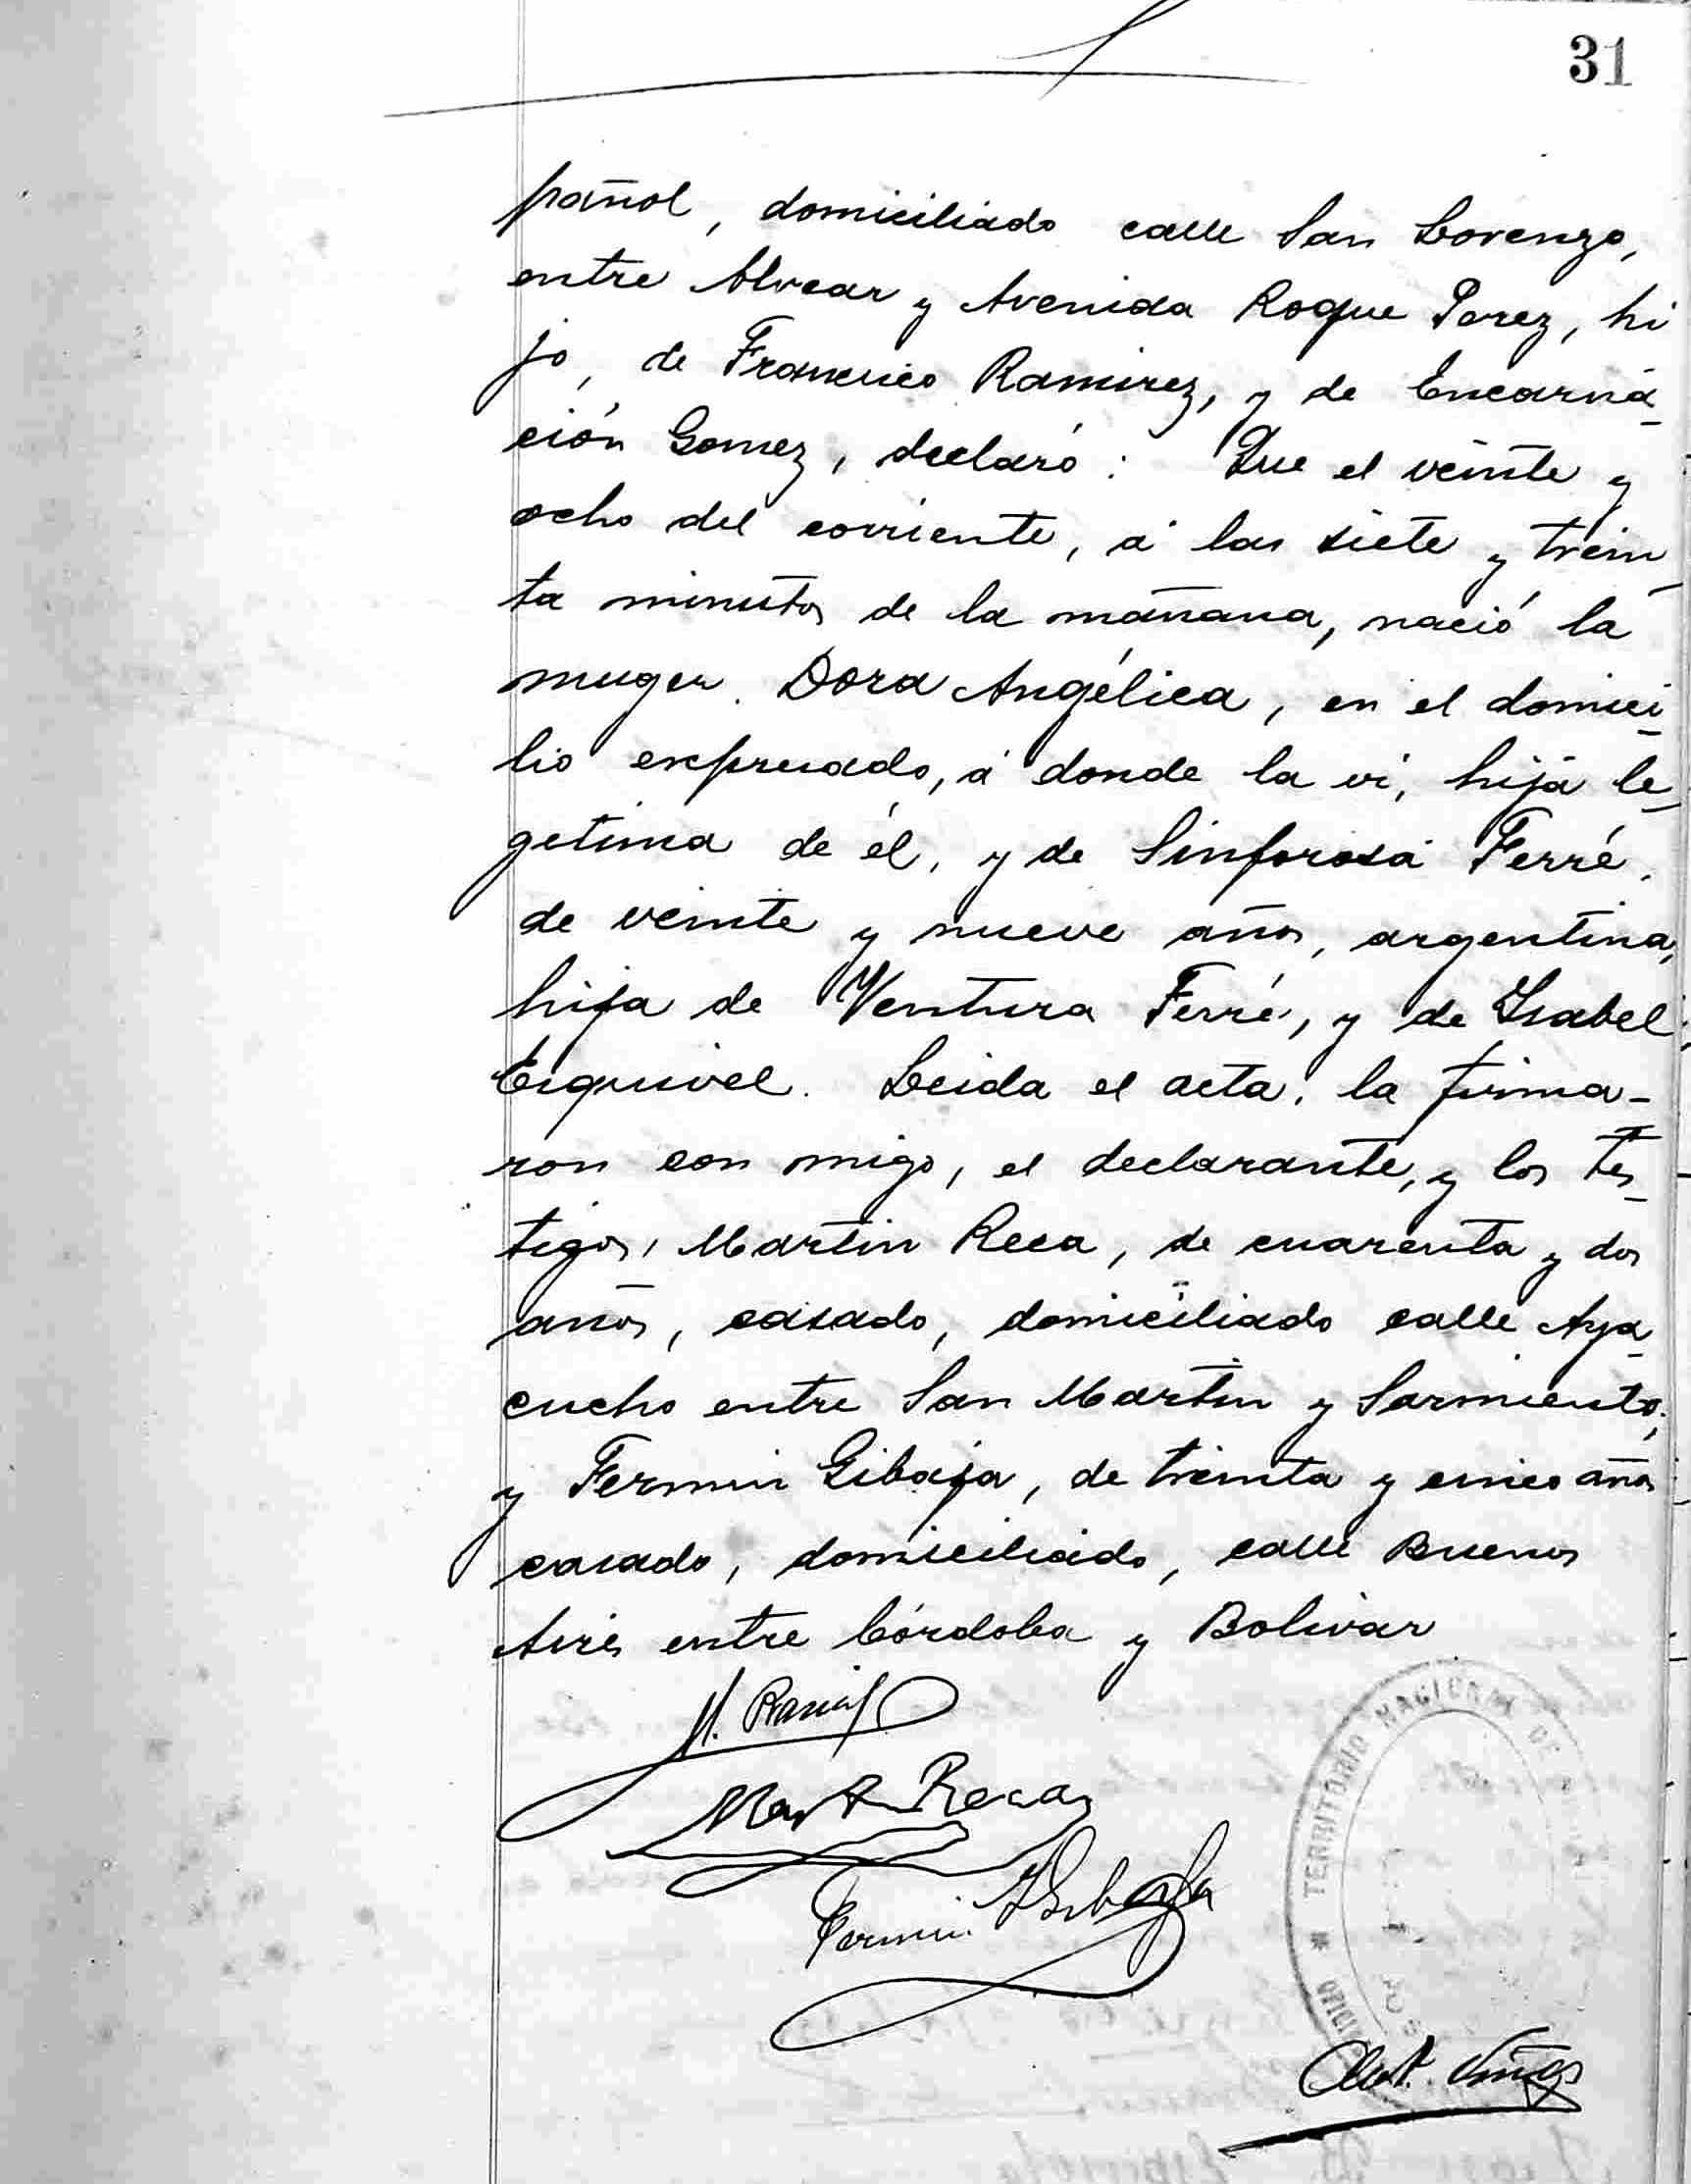 31
pañol, domiciliado calle San Lorenzo,
entre Alvear y Avenida Roque Perez, hi
jo, de Francisco Ramirez, y de Encarna-
ción Gomez, declaró: Que el veinte y
ocho del corriente, á las siete y trein-
ta minutos de la mañana, nació la
muger Dora Angélica, en el domici-
lio expresado, á donde la vi, hija le-
getima de él, y de Sinforosa Ferré,
de veinte y nueve años, argentina,
hija de Ventura Ferré, y de Isabel
Esquivel. Leida el acta, la firma-
ron con migo, el declarante, y los tes-
tigos, Martin Reca, de cuarenta y dos
años, casado, domiciliado calle Aya-
cucho entre San Martin y Sarmiento,
y Fermin Gibaja, de treinta y cinco años
casado, domiciliado, calle Buenos
Aires entre Córdoba y Bolivar
M. Ramirez
Martin Reca
Fermin Gibaja
TERRITORIO NACIONAL DE